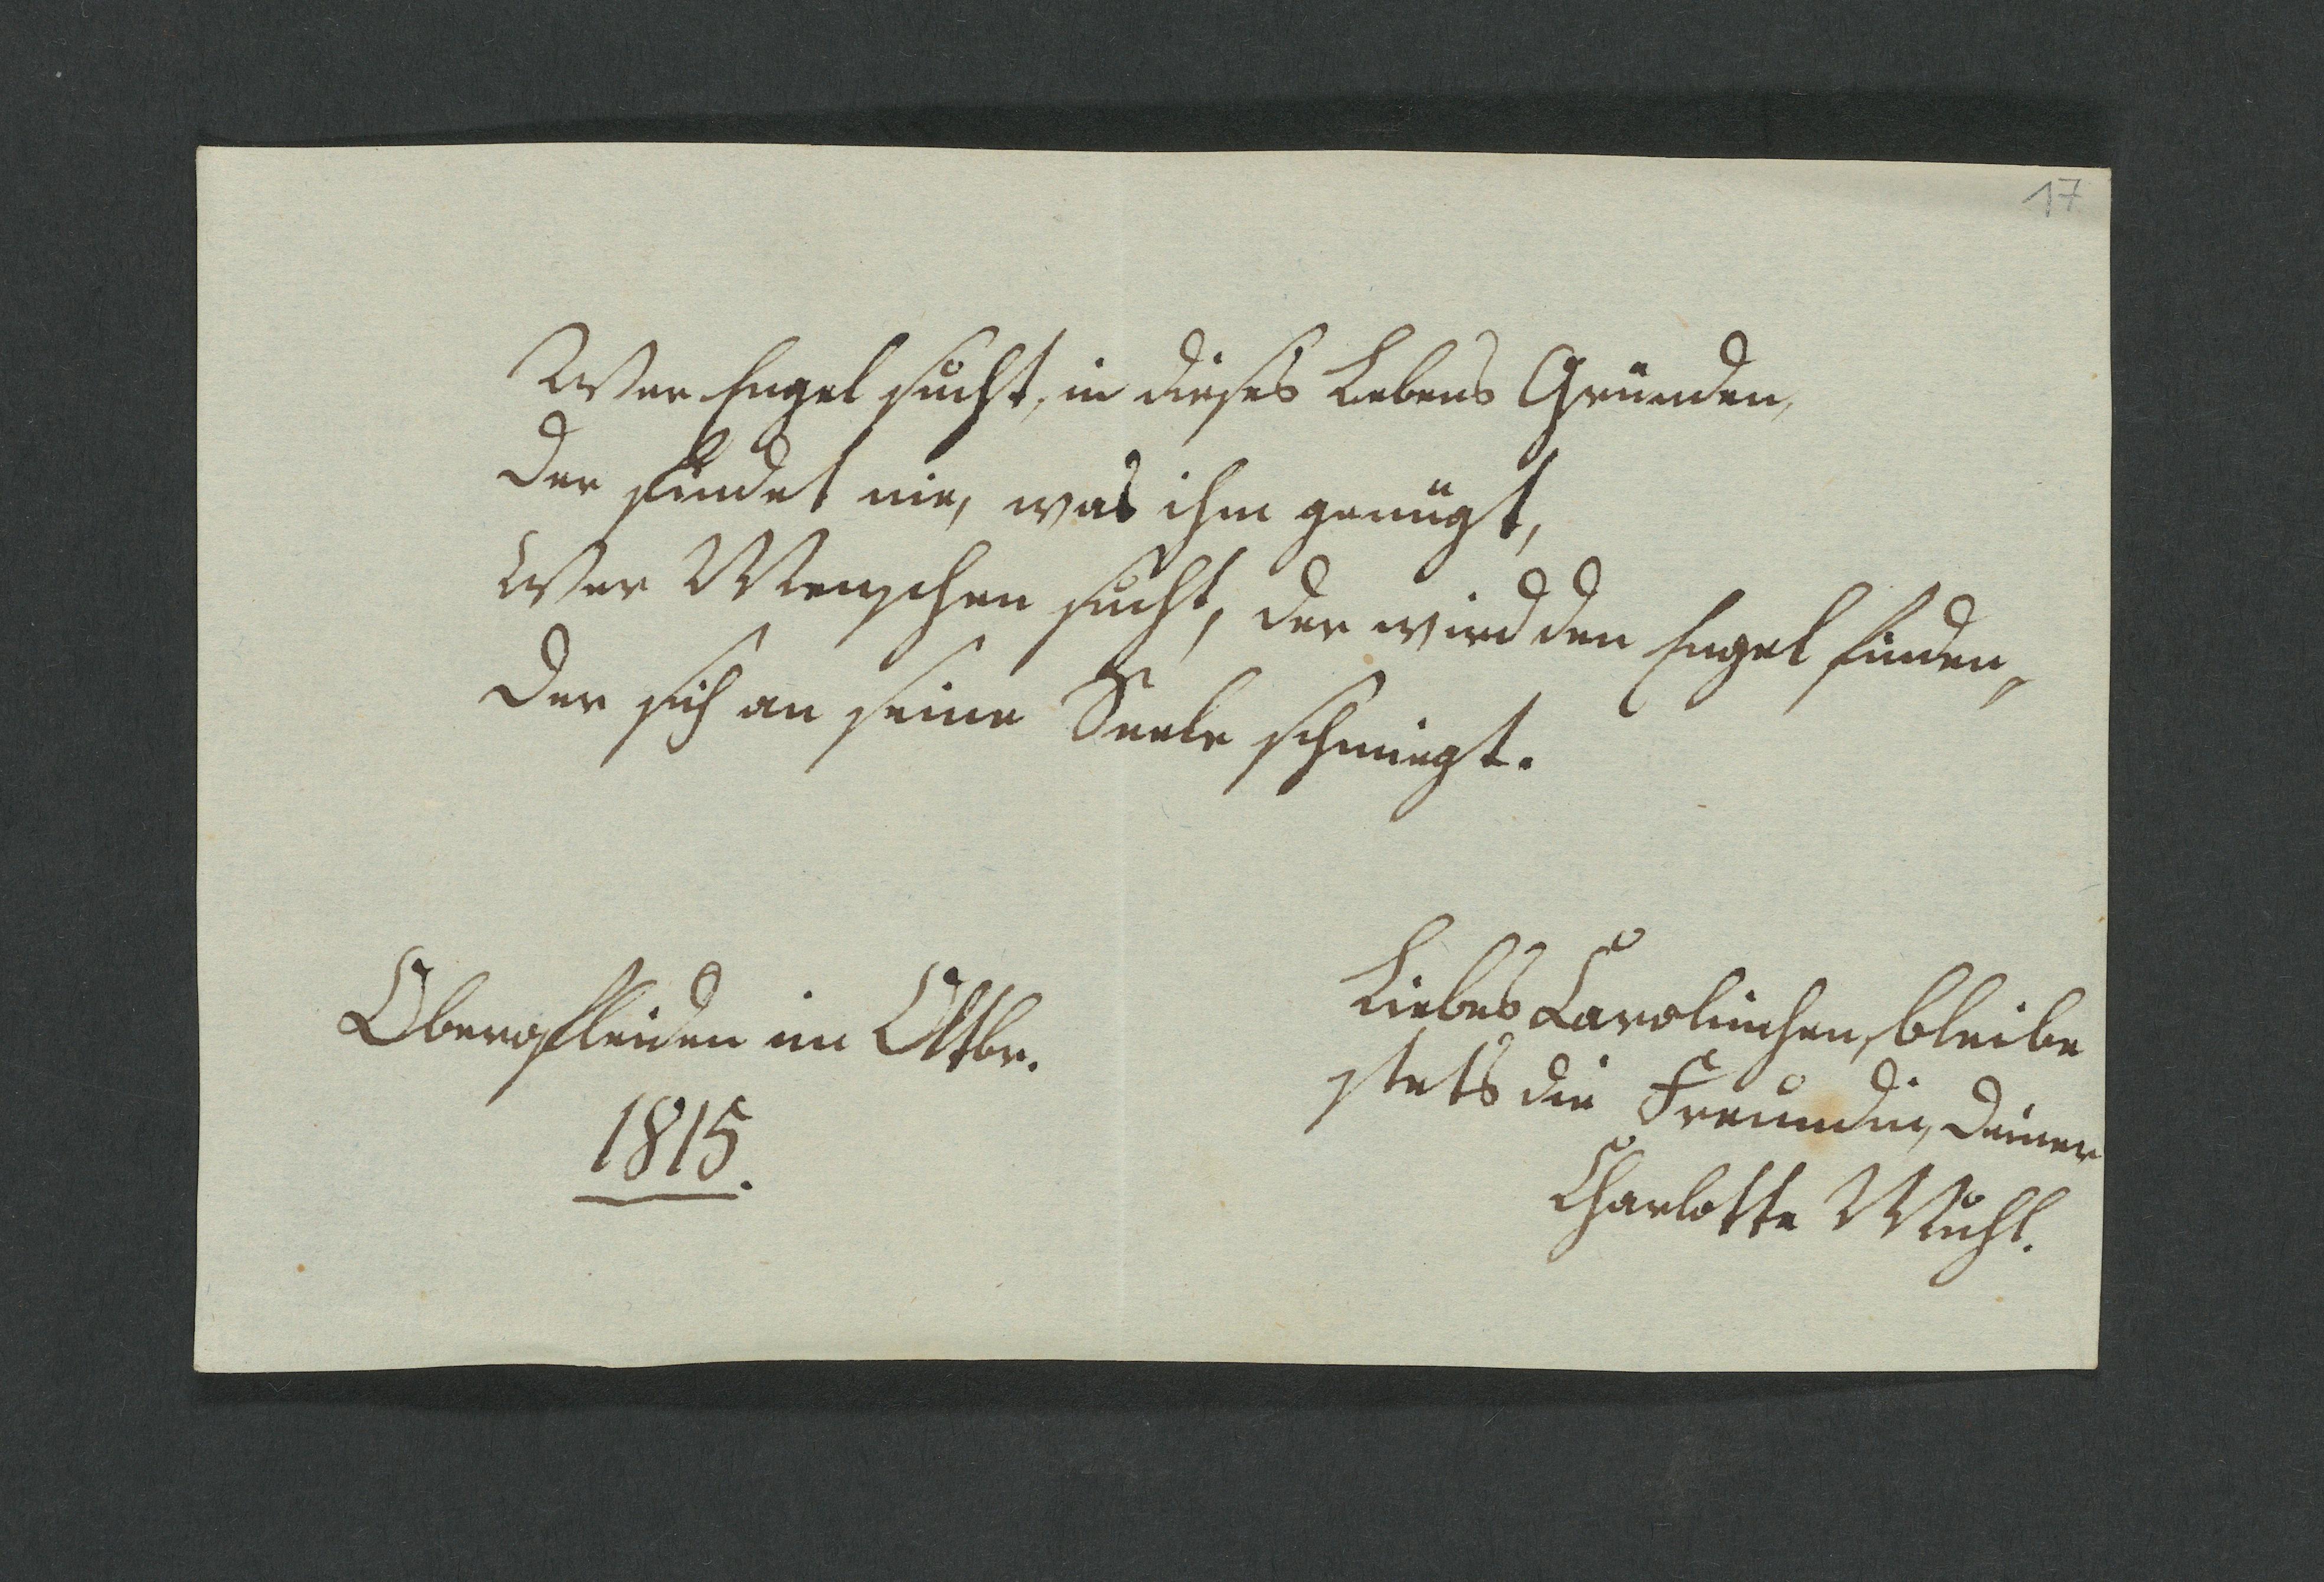 17
Wer Engel sucht, in dieses Lebens Gründen,
der findet nie, was ihm genügt,
Wer Menschen sucht, der wird den Engel finden,
der sich an seine Seele schmiegt.
Liebes Carolinchen, bleibe
stets die Freundin, deiner
Charlotte Muhl.
Oberofleiden im Oktbr.
1815.